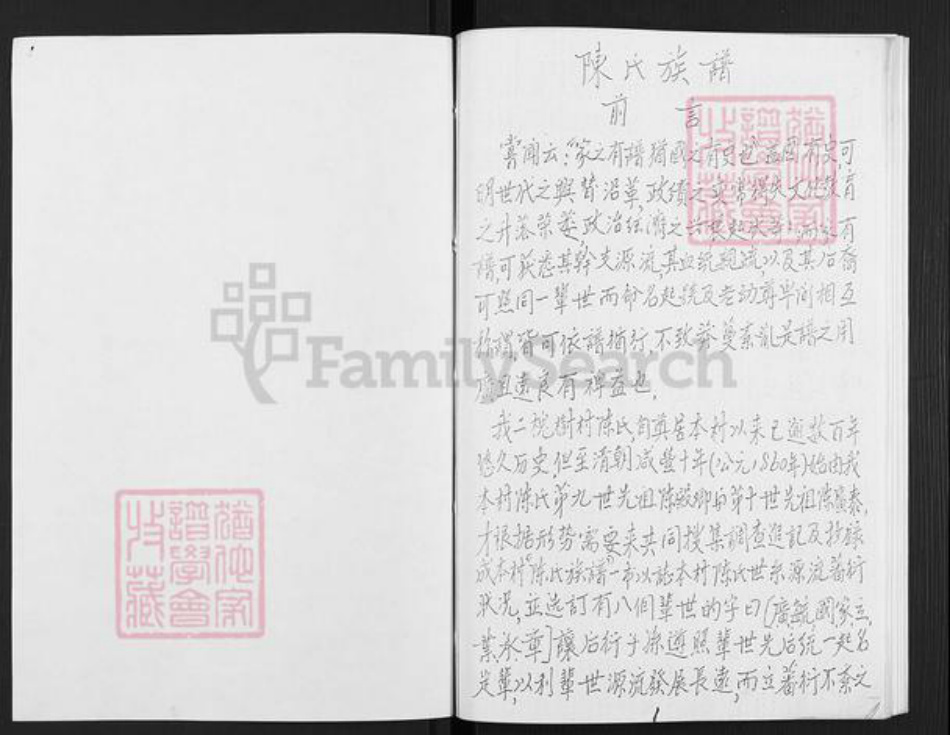 陳氏族譜
前 言
嘗聞云：“家之有譜猶國之有史也”蓋國有史,可
明世代之興替沿革,政績之 得失文化教育
之升落榮 ,政治经 之 ；而家有
譜,可获悉其幹支源流,其血统親疏,以及其后裔
可照同一輩世而命名起號及老幼尊卑间相互
称謂,皆可依譜循行,不致 蔓紊亂,是譜之用
遠 有裨益也.
我二槐樹村陈氏,自奠居本村以来已逾数百年
悠久历史,但至清朝咸豐十年(公元1860年)始由我
本村陈氏第九世先祖陈 卿的第十世先祖陈廣泰,
才根据形势需要来共同搜集調查追記及抄錄
成本村“陈氏族譜”一 以誌本村陈氏世系源流蕃衍
狀况,並选訂有八個輩世的字曰[廣毓國家立,
業 章]讓后衍子孫遵照輩世先后统一起名
定輩,以利輩世源流發展長遠,而立蕃衍不紊之
1
FamilySearch
猶他家譜學會收藏
猶他家譜學會收藏